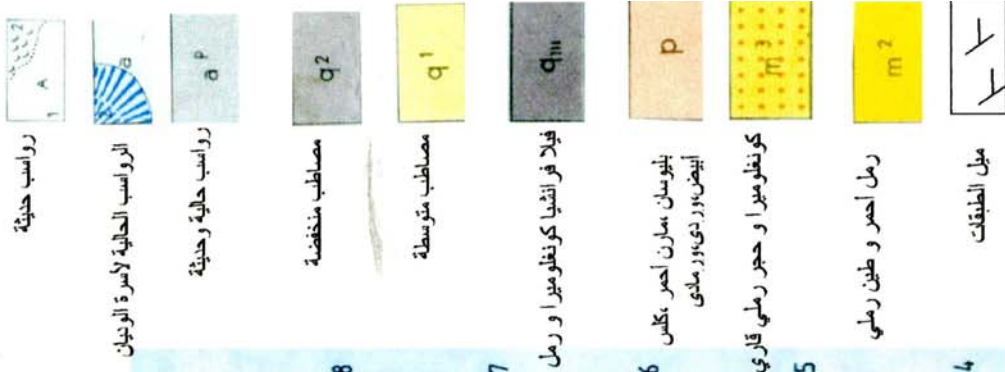 رواسب حديثة
1 A 2
الرواسب الحالية لأسرة الوديان
a
رواسب حالية وحديثة
a p
مصاطب منخفضة
q2
مصاطب متوسطة
q1
فيلا فرانشيا كونغلوميرا و رمل
qIII
بليوسان ،مارن أحمر ،كلس
أبيض،وردي،ورمادي
p
كونغلوميرا و حجر رملي قاري
m3
رمل أحمر و طين رملي
m2
ميل الطبقات
8
7
6
5
4